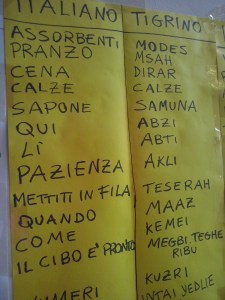 ITALIANO TIGRINO
ASSORBENTI MODES
PRANZO MSAH
CENA DIRAR
CALZE CALZE
SAPONE SAMUNA
QUI ABZI
LÌ ABTI
PAZIENZA AKLI
METTITI IN FILA TESERAH
QUANDO MAAZ
COME KEMEI
IL CIBO E' PRONTO MEGBI TEGHE
RIBU
KUZRI
NUMERI INTAI YEDLIE